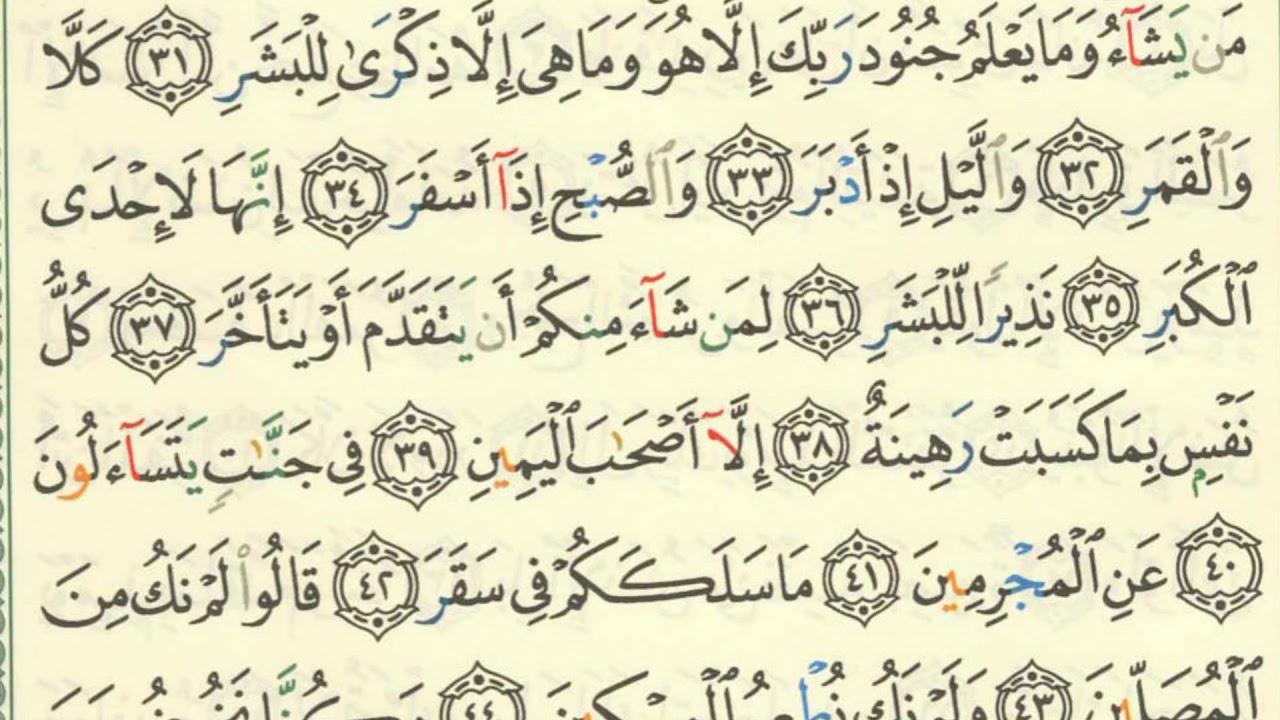 مَن يَشَآءُ وَمَا يَعْلَمُ جُنُودَ رَبِّكَ إِلَّا هُوَ وَمَا هِىَ إِلَّا ذِكْرَىٰ لِلْبَشَرِ ٣١ كَلَّا
وَٱلْقَمَرِ ٣٢ وَٱلَّيْلِ إِذْ أَدْبَرَ ٣٣ وَٱلصُّبْحِ إِذَآ أَسْفَرَ ٣٤ إِنَّهَا لَإِحْدَى
ٱلْكُبَرِ ٣٥ نَذِيرًا لِّلْبَشَرِ ٣٦ لِمَن شَآءَ مِنكُمْ أَن يَتَقَدَّمَ أَوْ يَتَأَخَّرَ ٣٧ كُلُّ
نَفْسٍۭ بِمَا كَسَبَتْ رَهِينَةٌ ٣٨ إِلَّآ أَصْحَٰبَ ٱلْيَمِينِ ٣٩ فِى جَنَّٰتٍ يَتَسَآءَلُونَ
٤٠ عَنِ ٱلْمُجْرِمِينَ ٤١ مَا سَلَكَكُمْ فِى سَقَرَ ٤٢ قَالُوا۟ لَمْ نَكُ مِنَ
ٱلْمُصَلِّينَ ٤٣ وَلَمْ نَكُ نُطْعِمُ ٱلْمِسْكِينَ ٤٤